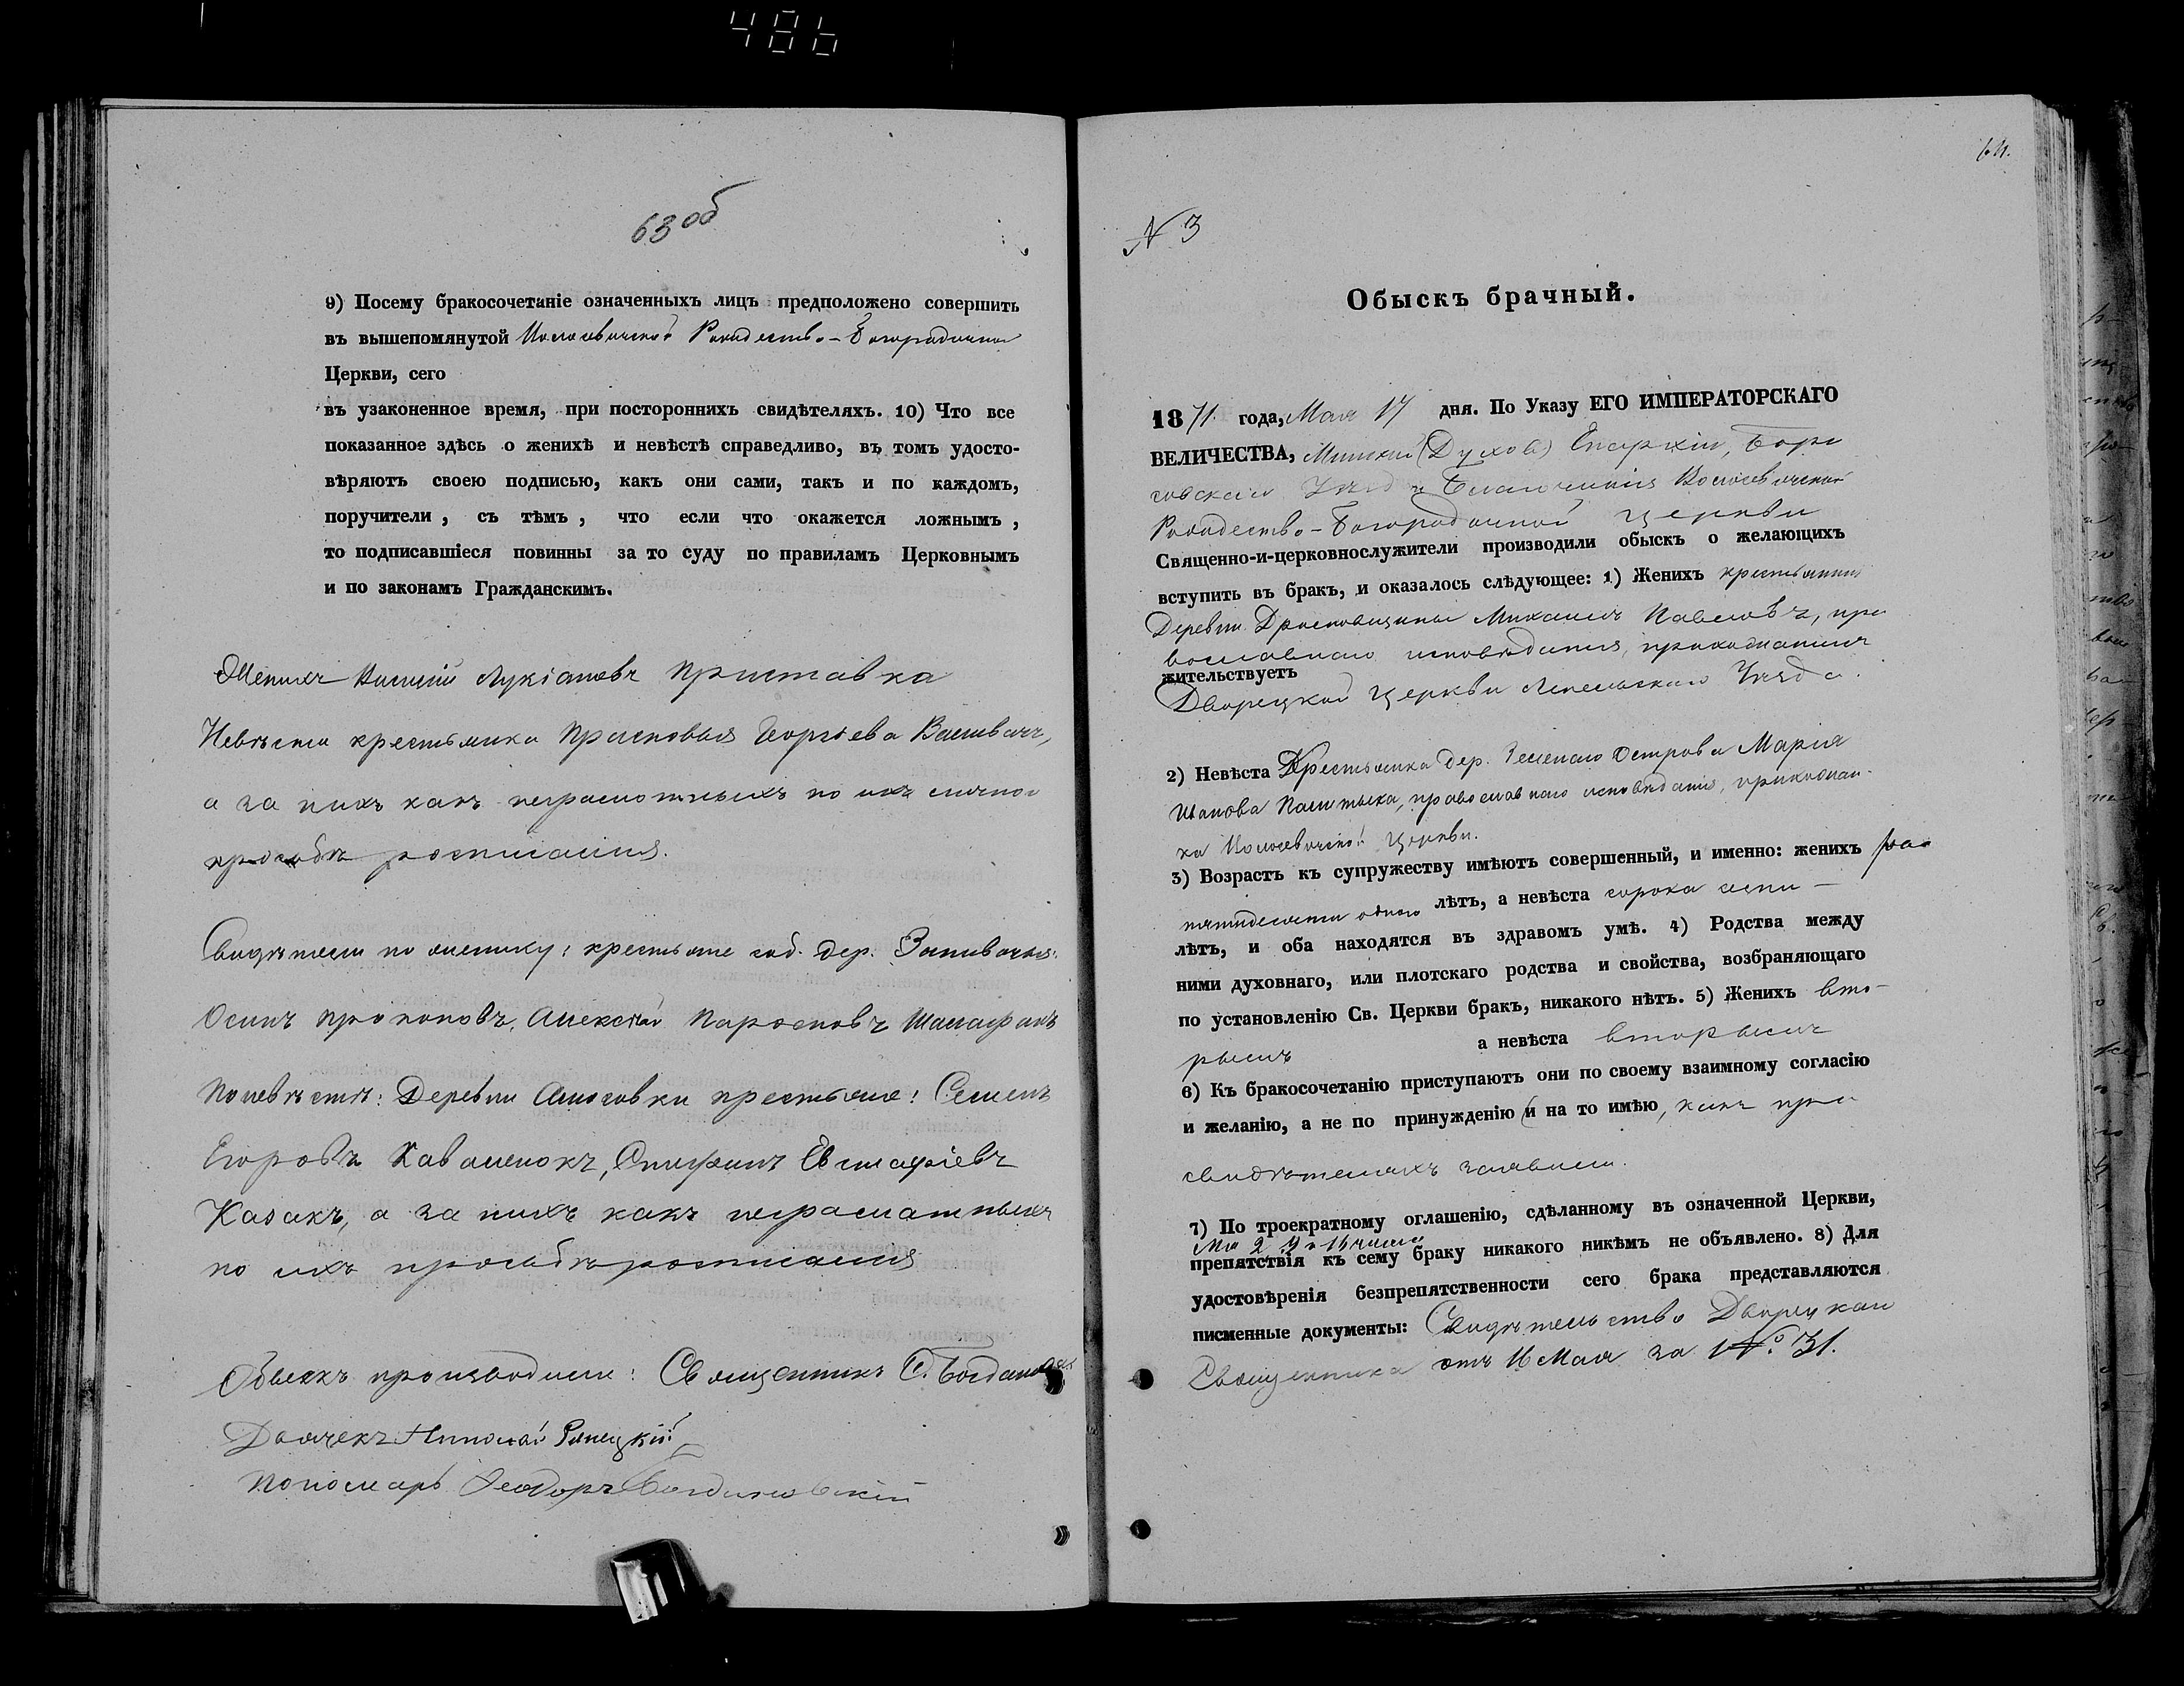 486
63 об
9) Посему бракосочетаніе означенныхъ лицъ предположено совершить
въ вышепомянутой Рождество-Богородичной
Церкви, сего
въ узаконенное время, при постороннихъ свидѣтеляхъ. 10) Что все
показанное здѣсь о женихѣ и невѣстѣ справедливо, въ томъ удосто-
вѣряютъ своею подписью, какъ они сами, такъ и по каждомъ,
поручители, съ тѣмъ, что если что окажется ложнымъ,
то подписавшіеся повинны за то суду по правиламъ Церковнымъ
и по законамъ Гражданскимъ.
Женихъ Лукіановъ Приставка
Невѣста крестьянка Прасковья Георгіева
а за нихъ какъ неграмотныхъ по ихъ личной
просьбѣ росписался.
Свидѣтели по женику: крестьяне дер.
Осипъ Прокоповъ, Алексѣй
По невѣстѣ: Деревни крестьяне: Семенъ
Егоровъ Каваленокъ, Евстафіевъ
Казакъ, а за нихъ какъ неграмотныхъ
по ихъ просьбѣ росписался
Обыскъ производили: Священникъ
Дьячекъ Николай
Пономарь Феодоръ
64.
N 3
Обыскъ брачный.
1871 года, Мая 17 дня. По Указу ЕГО ИМПЕРАТОРСКАГО
ВЕЛИЧЕСТВА, Минской (Духов) Епархіи, Бори
совскаго Уѣзда
Рождество-Богородичной церкви
Священно-и-церковнослужители производили обыскъ о желающихъ
вступить въ бракъ, и оказалось слѣдующее: 1) Женихъ крестьянинъ
Деревни Михаилъ Павловъ, пра
вославнаго исповѣданія, прихожанинъ
жительствуетъ
Дворецкой церкви Лепельскаго Уѣзда.
2) Невѣста Крестьянка дер. Зеленаго Острова Марія
Иванова православнаго исповѣданія, прихожан-
ка церкви.
3) Возрастъ къ супружеству имѣютъ совершенный, и именно: женихъ
пятидесяти одного лѣтъ, а невѣста сорока семи —
лѣтъ, и оба находятся въ здравомъ умѣ. 4) Родства между
ними духовнаго, или плотскаго родства и свойства, возбраняющаго
по установленію Св. Церкви бракъ, никакого нѣтъ. 5) Женихъ вто-
рымъ а невѣста вторымъ
6) Къ бракосочетанію приступаютъ они по своему взаимному согласію
и желанію, а не по принужденію (и на то имѣю, какъ при
свидѣтеляхъ заявили.
7) По троекратному оглашенію, сдѣланному въ означенной Церкви,
Мая 2, 9 и 16 числа
препятствія къ сему браку никакого никѣмъ не объявлено. 8) Для
удостовѣренія безпрепятственности сего брака представляются
писменные документы: Свидѣтельство Дворецкаго
Священника отъ 16 Мая за № 31.